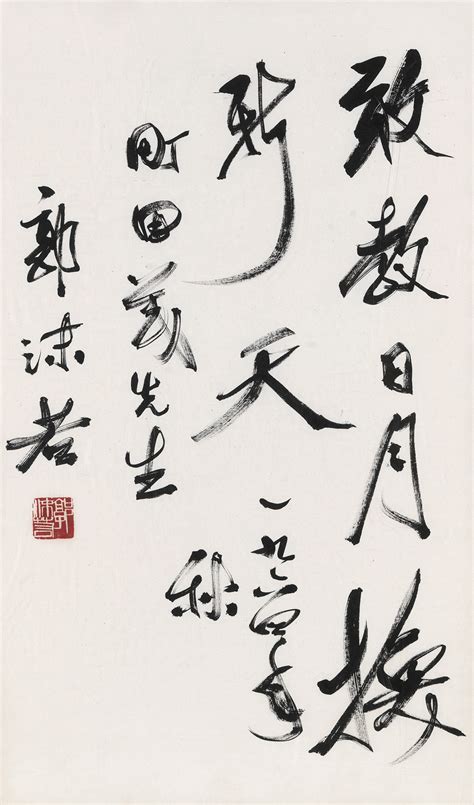 敢教日月换
新天
一九六四年
秋
町田茂先生
郭沫若
郭沫若